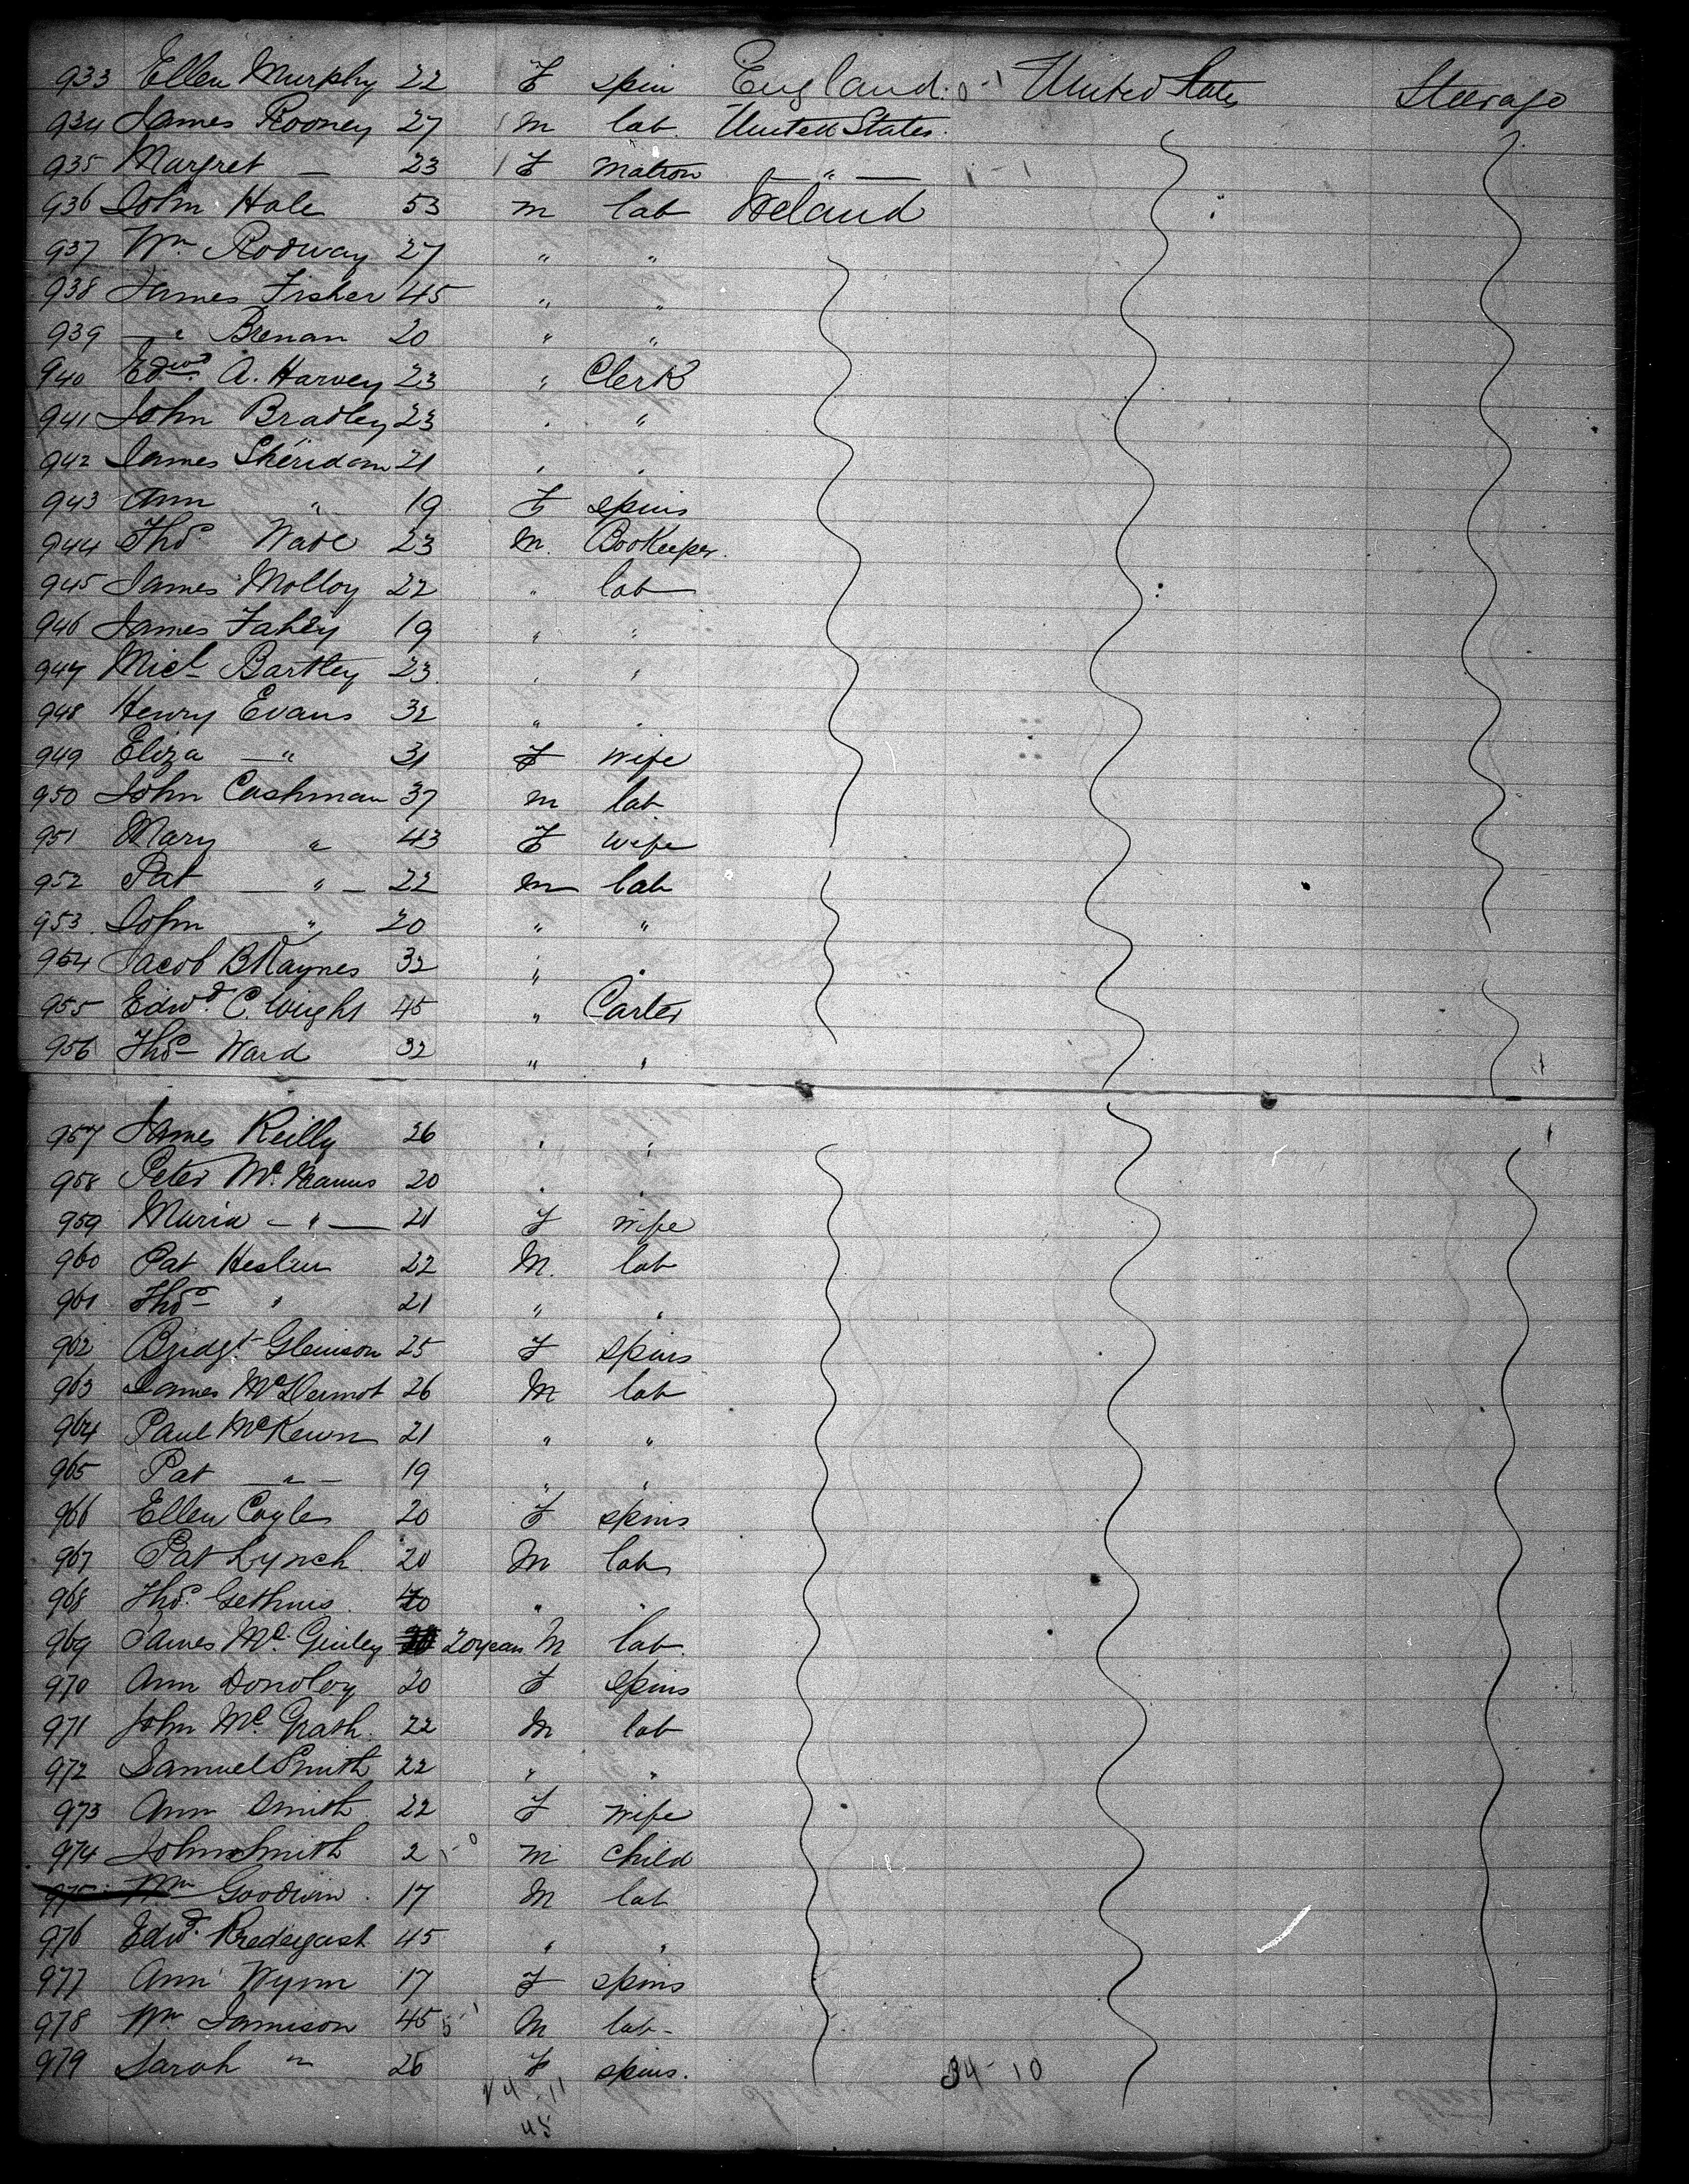 933 Ellen Murphy 22 F spin England United States Steerage
934 James Rooney 27 m lab. United States.
935 Margret — 23 F matron — " —
936 John Hale 53 m lab Ireland
937 Wm Rodway 27 " "
938 James Fisher 45 " "
939 — " Brenan 20 " "
940 Edwd. A. Harvey 23 " Clerk
941 John Bradley 23 " "
942 James Sheridan 21 " "
943 Ann " 19 F spins
944 Thos Wade 23 m. Bookeeper.
945 James Molloy 22 " lab
946 James Fahey 19 " "
947 Micl Bartley 23 " "
948 Henry Evans 32 " "
949 Eliza — " 31 F wife
950 John Cashman 37 m lab
951 Mary " 43 F wife
952 Pat — " — 22 m lab
953 John — " 20 " "
954 Jacob B Raynes 32 " "
955 Edwd. C. Wright 45 " Carter
956 Thos Ward 32 " "
957 James Reilly 26 " "
958 Peter Mc. Manus 20 " "
959 Maria — " — 21 F wife
960 Pat Heslin 22 M. lab
961 Thos " 21 " "
962 Bridgt Glennon 25 F spins
963 James McDermot 26 M lab
964 Paul McKewn 21 " "
965 Pat — " — 19 " "
966 Ellen Coyle 20 F spins
967 Pat Lynch 20 M lab
968 Thos. Gethins 20 " "
969 James Mc. Ginley 20 years M lab.
970 Ann Donoloy 20 F spins
971 John Mc. Grath 22 M lab
972 Samuel Smith 22 " "
973 Ann Smith 22 F wife
974 John Smith 2 m child
975 Wm Goodwin 17 M lab
976 Edwd. Predergast 45 " "
977 Ann Wynn 17 F spins
978 Wm Jamison 45 M lab-
979 Sarah " 26 F spins.
34-10
45